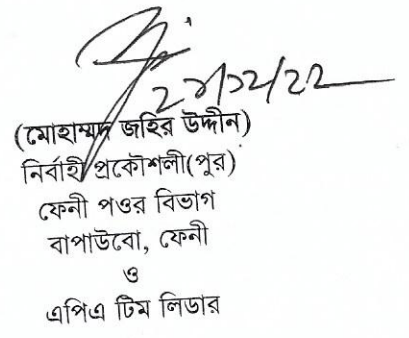 (মোহাম্মদ জহির উদ্দীন)
নির্বাহী প্রকৌশলী(পুর)
ফেনী পওর বিভাগ
বাপাউবো, ফেনী
ও
এপিএ টিম লিডার